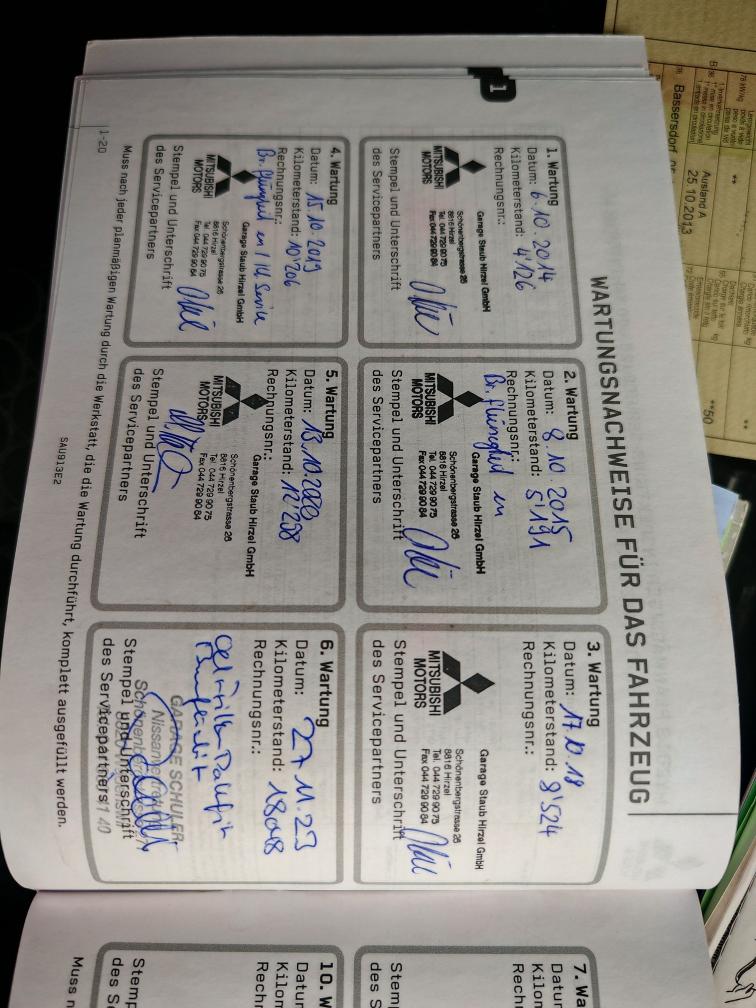 WARTUNGSNACHWEISE FÜR DAS FAHRZEUG
1
1. Wartung
Datum: 6.10.2014
Kilometerstand: 4'126
Rechnungsnr.:
MITSUBISHI
MOTORS
Garage Staub Hirzel GmbH
Schönenbergstrasse 26
8816 Hirzel
Tel. 044 729 90 75
Fax 044 729 90 84
Stempel und Unterschrift
des Servicepartners
2. Wartung
Datum: 8.10.2015
Kilometerstand: 5'191
Rechnungsnr.:
Br. flüssigkeit en
MITSUBISHI
MOTORS
Garage Staub Hirzel GmbH
Schönenbergstrasse 26
8816 Hirzel
Tel. 044 729 90 75
Fax 044 729 90 84
Stempel und Unterschrift
des Servicepartners
3. Wartung
Datum: 17.10.18
Kilometerstand: 8'524
Rechnungsnr.:
MITSUBISHI
MOTORS
Garage Staub Hirzel GmbH
Schönenbergstrasse 26
8816 Hirzel
Tel. 044 729 90 75
Fax 044 729 90 84
Stempel und Unterschrift
des Servicepartners
4. Wartung
Datum: 15.10.2019
Kilometerstand: 10'206
Rechnungsnr.:
Br. flüssigkeit en / Kl. Service
MITSUBISHI
MOTORS
Garage Staub Hirzel GmbH
Schönenbergstrasse 26
8816 Hirzel
Tel. 044 729 90 75
Fax 044 729 90 84
Stempel und Unterschrift
des Servicepartners
5. Wartung
Datum: 13.10.2020
Kilometerstand: 12'258
Rechnungsnr.:
MITSUBISHI
MOTORS
Garage Staub Hirzel GmbH
Schönenbergstrasse 26
8816 Hirzel
Tel. 044 729 90 75
Fax 044 729 90 84
Stempel und Unterschrift
des Servicepartners
6. Wartung
Datum: 27.11.23
Kilometerstand: 18048
Rechnungsnr.:
GARAGE SCHULER
Stempel und Unterschrift
des Servicepartners
Muss nach jeder planmäßigen Wartung durch die Werkstatt, die die Wartung durchführt, komplett ausgefüllt werden.
1-20
SAU913E2
7. Wa
Datu
Kilon
Rechn
Stem
des S
10. W
Datu
Kilon
Rechn
Stemp
des Se
Muss n
Bassersdorf
Ausland A
25.10.2013
**50